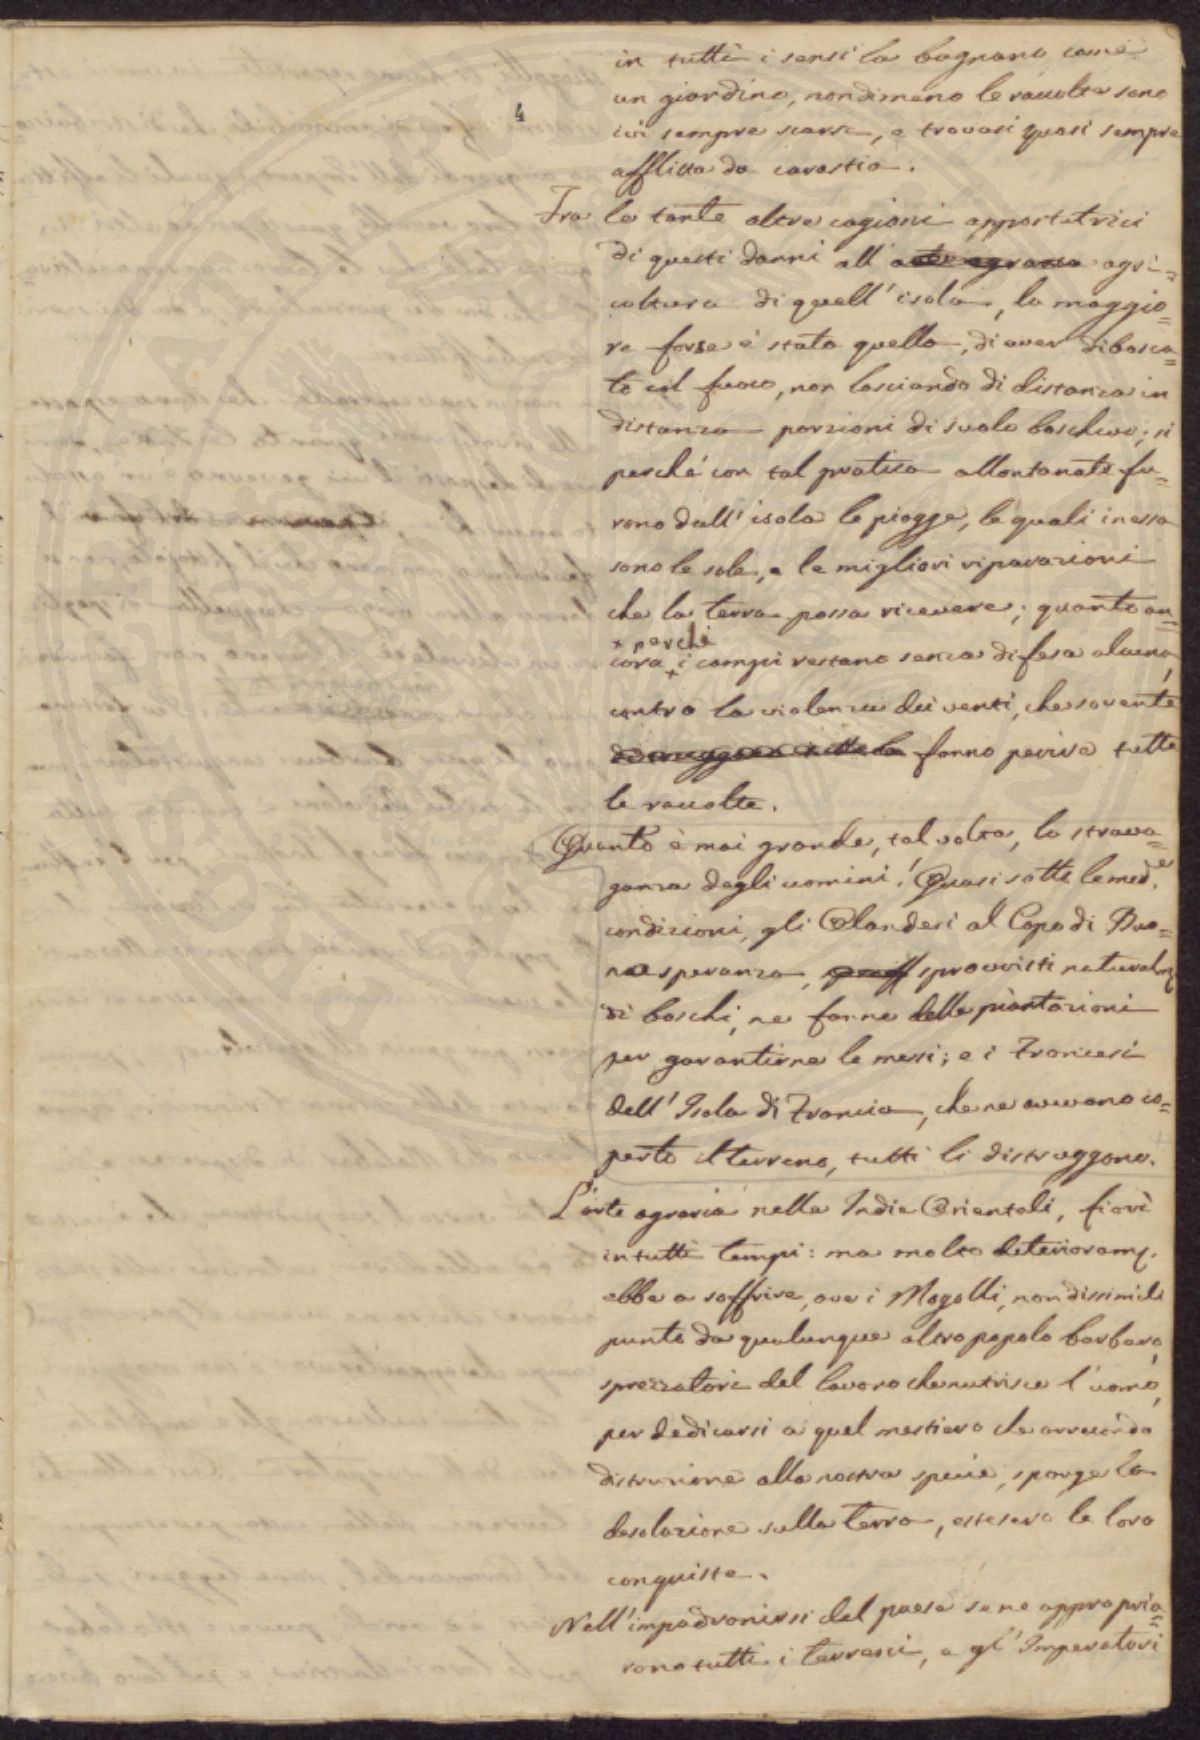 4
in tutti i sensi la bagnano come
un giardino, nondimeno le raccolte sono
ivi sempre scarse, e trovasi quasi sempre
afflitta da carastia.
Fra le tante altre cagioni apportatrici
di questi danni all' arte agraria agri=
cultura di quell' isola, la maggio=
re forse è stata quella, di aver disbosca=
to col fuoco, non lasciando di distanza in
distanza porzioni di suolo boschivo; si
perché con tal pratica allontanate fu=
rono dall' isola le piogge, le quali in essa
sono le sole, e le migliori riparazioni
che la terra possa ricevere; quanto an=
+ perché
cora + i campi restano senza difesa alcuna,
contro la violenza dei venti, che sovente
fanno perire tutte
le raccolte.
Quanto è mai grande, tal volta, la strava=
ganza degli uomini! Quasi sotto le med.e
condizioni, gli Olandesi al Capo di Buo=
na speranza, sprovvisti naturalm.
di boschi, ne fanno delle piantazioni
per garantirne le messi; e i Francesi
dell' Isola di Francia, che ne avevano co=
perto il terreno, tutti li distruggono.
L'arte agraria nelle Indie Orientali, fiorì
in tutti tempi: ma molto deterioram.
ebbe a soffrire, ove i Mogolli, non dissimili
punto da qualunque altro popolo barbaro,
sprezzatori del lavoro che nutrisce l' uomo,
per dedicarsi a quel mestiero che arrecando
distruzione alla nostra specie, sparge la
desolazione sulla terra, estesero le loro
conquiste.
Nell' impadronirsi del paese se ne appropria=
rono tutti i terreni, e gl' Imperatori